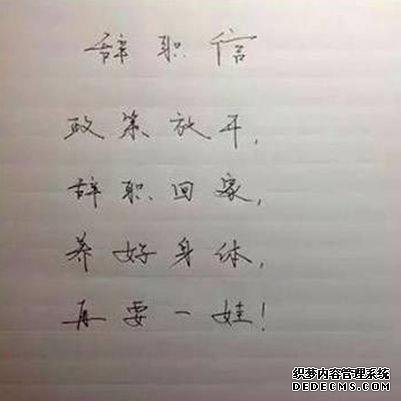 辞职信
政策放开,
辞职回家,
养好身体,
再要一娃!
织梦内容管理系统
DEDECMS.COM